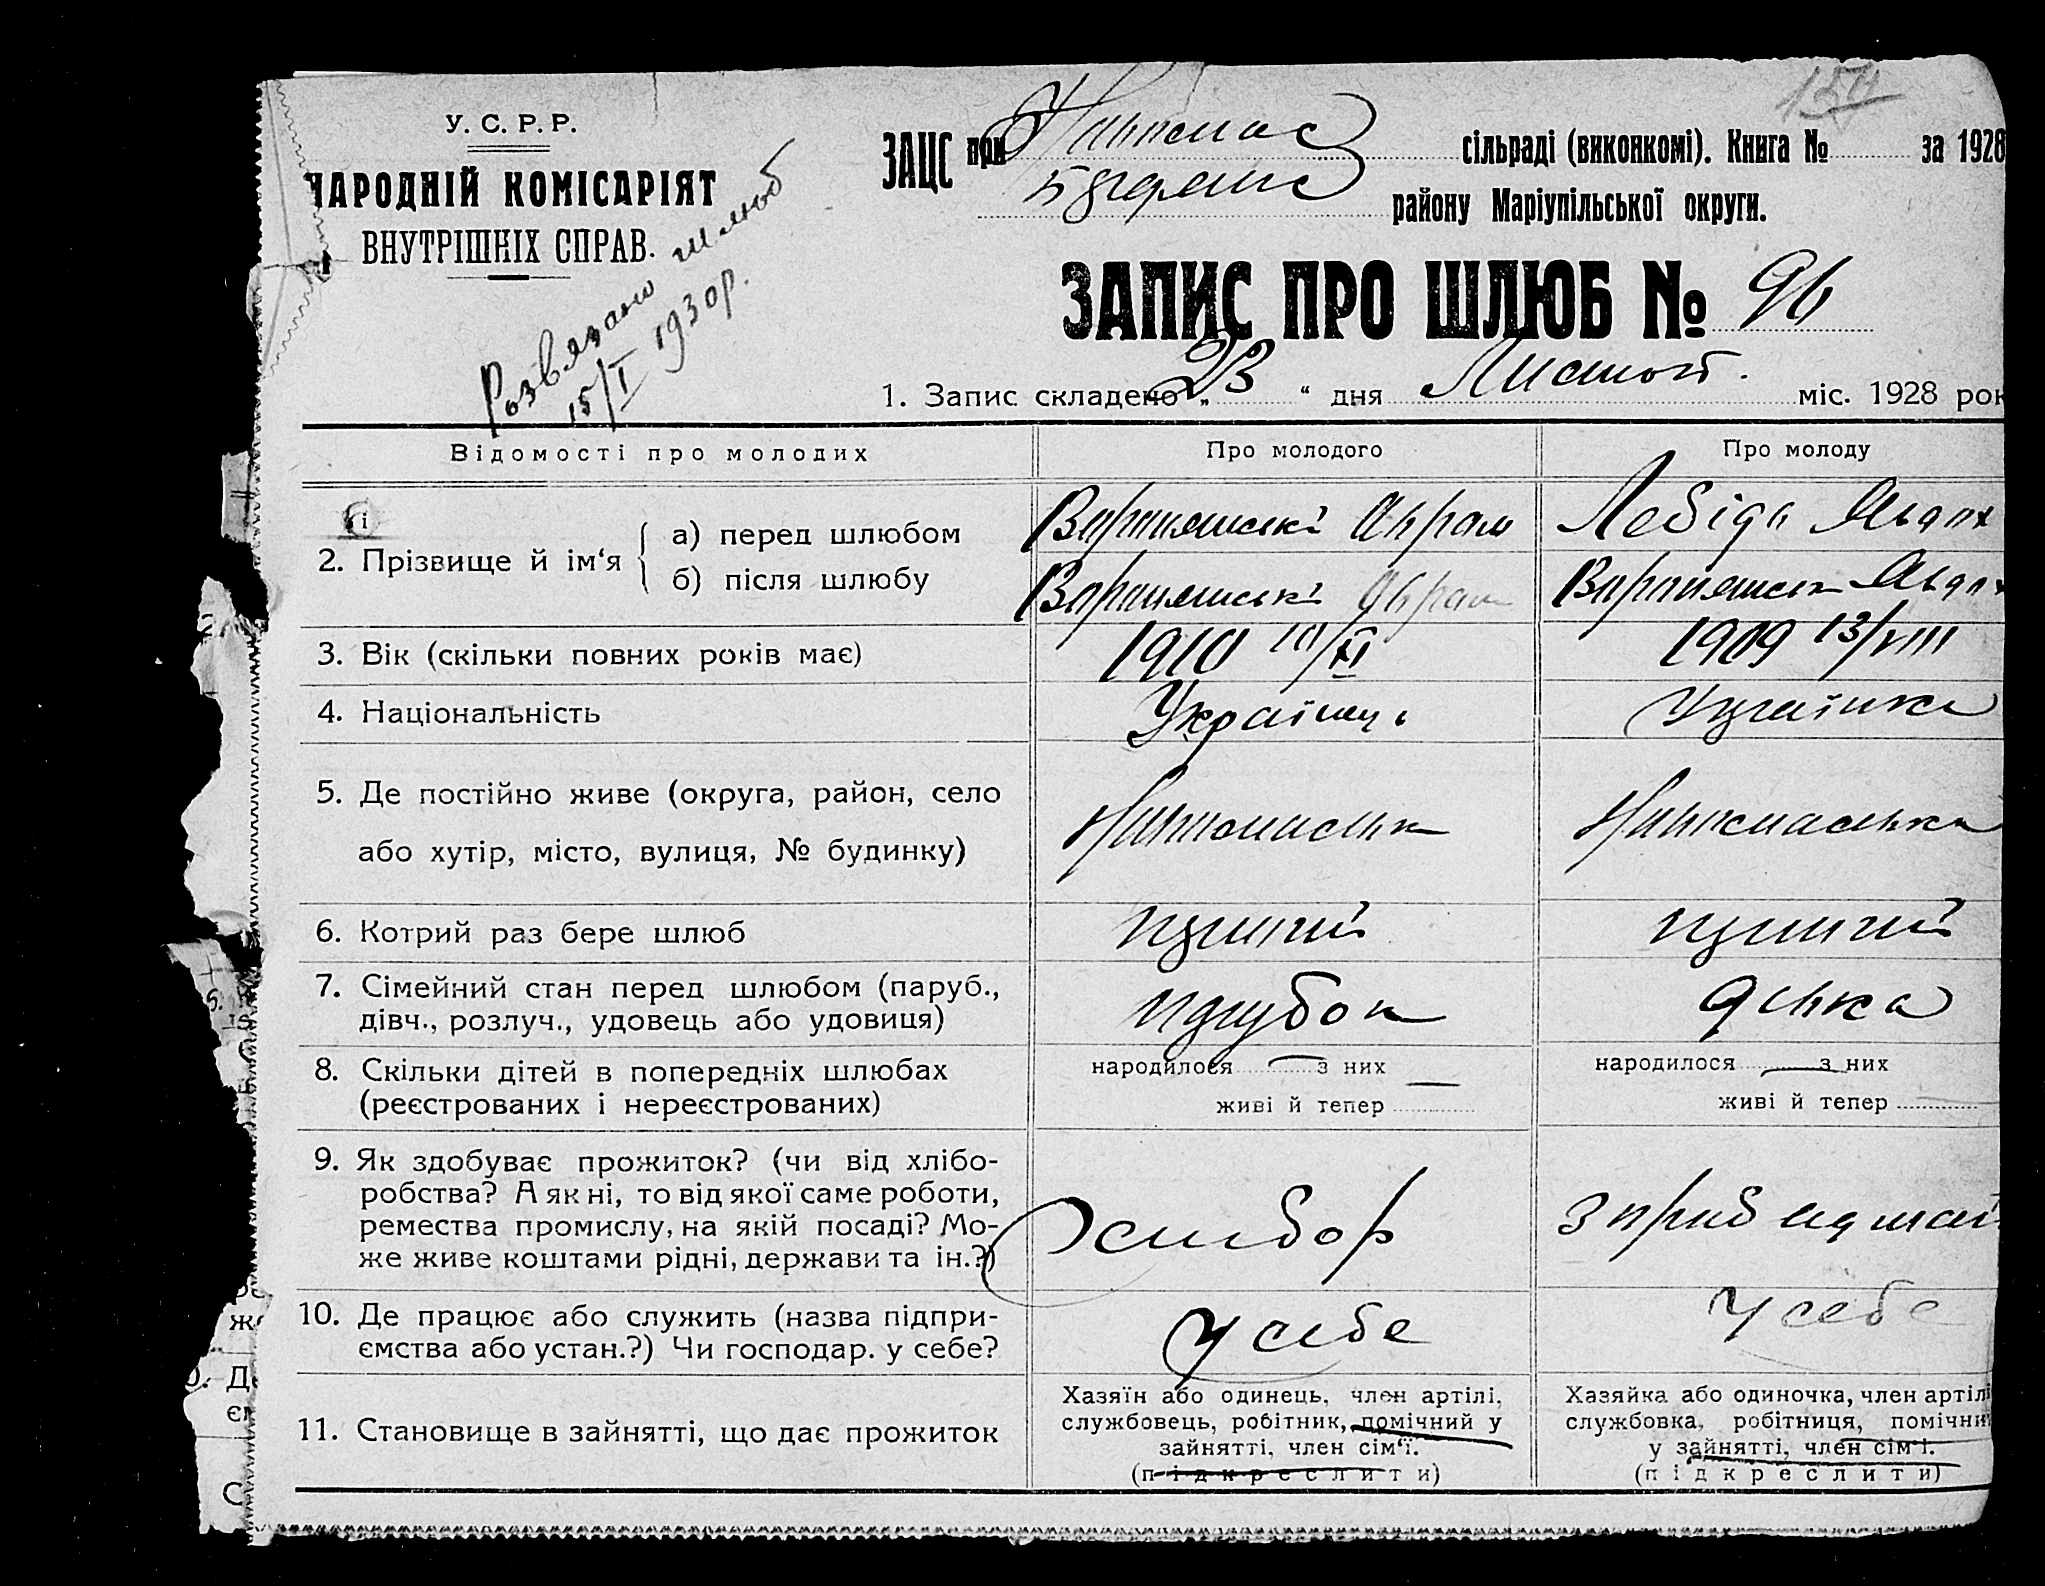 У. С. Р. Р.
НАРОДНІЙ КОМІСАРІЯТ
ВНУТРІШНІХ СПРАВ.
Розвязано шлюб
15/I 1930р.
ЗАЦС при сільраді (виконкомі). Книга № за 1928
району Маріупільської округи.
ЗАПИС ПРО ШЛЮБ № 96
1. Запис складено „23“ дня Листоп. міс. 1928 рок
Відомості про молодих
Про молодого
Про молоду
2. Прізвище й ім‘я
а) перед шлюбом
Аврам
Лебідь
б) після шлюбу
Аврам
3. Вік (скільки повних років має)
1910 10/XI
1909 13/VIII
4. Національність
Українець
Українка
5. Де постійно живе (округа, район, село
або хутір, місто, вулиця, № будинку)
6. Котрий раз бере шлюб
7. Сімейний стан перед шлюбом (паруб.,
дівч., розлуч., удовець або удовиця)
парубок
дівка
8. Скільки дітей в попередніх шлюбах
(реєстрованих і нереєстрованих)
народилося — з них —
живі й тепер
народилося — з них
живі й тепер
9. Як здобуває прожиток? (чи від хлібо-
робства? А як ні, то від якої саме роботи,
ремества промислу, на якій посаді? Мо-
же живе коштами рідні, держави та ін.?)
Хлібор
10. Де працює або служить (назва підпри-
ємства або устан.?) Чи господар. у себе?
у себе
у себе
11. Становище в зайнятті, що дає прожиток
Хазяїн або одинець, член артілі,
службовець, робітник, помічний у
зайнятті, член сім‘ї.
(підкреслити)
Хазяйка або одиночка, член артілі
службовка, робітниця, помічни
у зайнятті, член сім‘ї.
(підкреслити)